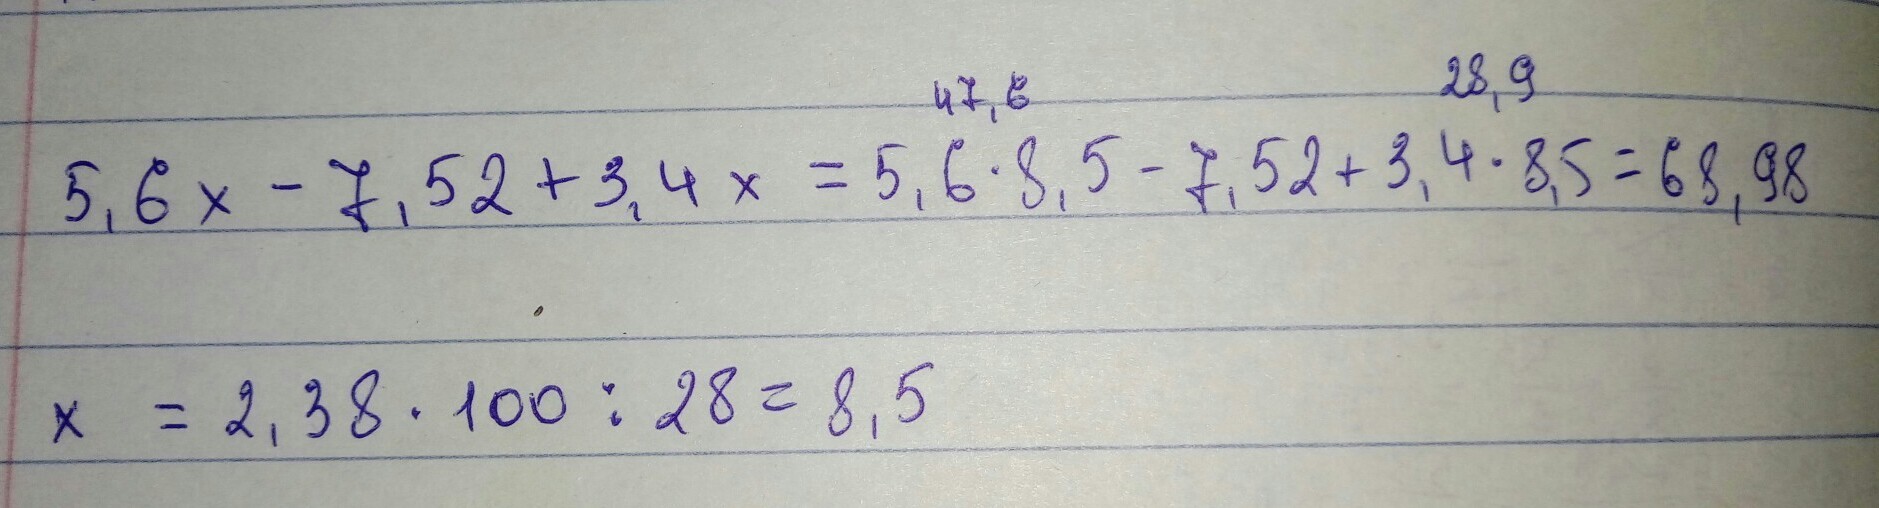 47,6 28,9
5,6x - 7,52 + 3,4x = 5,6 · 8,5 - 7,52 + 3,4 · 8,5 = 68,98
x = 2,38 · 100 : 28 = 8,5